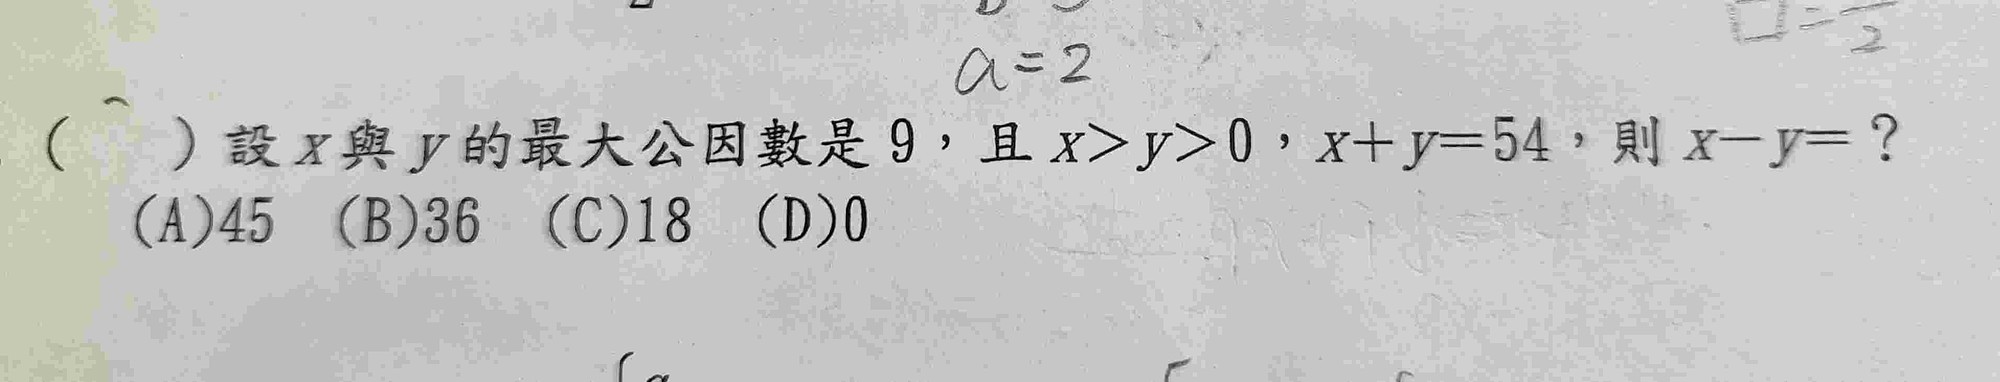 a=2
□=—/2
( ) 設 x 與 y 的最大公因數是 9，且 x>y>0，x+y=54，則 x-y=？
(A)45 (B)36 (C)18 (D)0